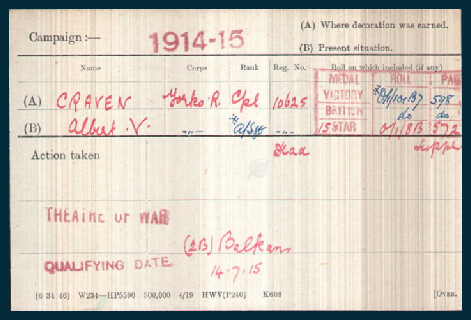 (A) Where decoration was earned.
Campaign :— 1914-15
(B) Present situation.
Name Corps Rank Reg. No. Roll on which included (if any)
MEDAL ROLL PAG
(A) CRAVEN Yorks. R. Cpl 10625 VICTORY *O/1/101 B7 598
BRITISH do do.
(B) Albert .V. —„— *A/Sjt 15 STAR O/1/8B 572
Action taken Dead Supple
THEATRE OF WAR
(2B) Balkans
QUALIFYING DATE 14.7.15
(6 34 46) W234—HP5590 500,000 4/19 HWV(P240) K608 [Over.